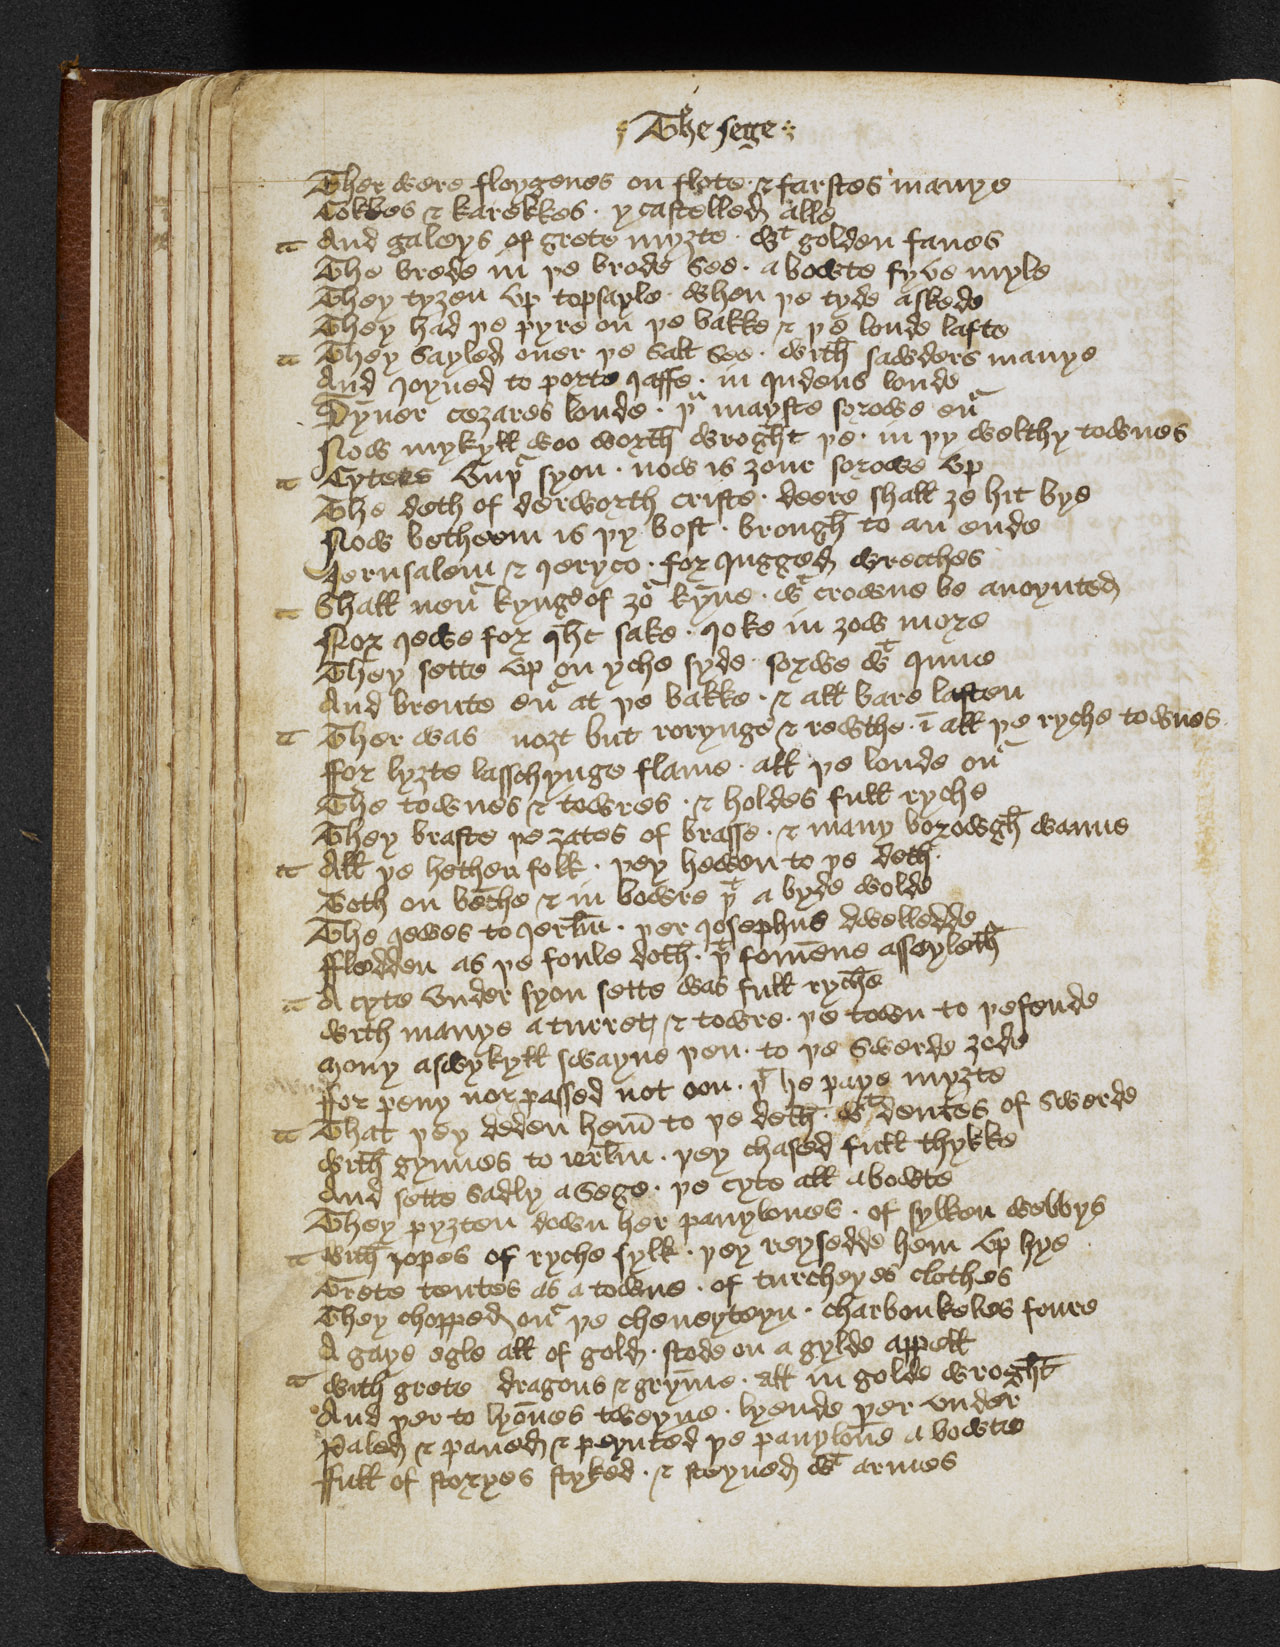 The sege
Ther were floygenes on flote · & farstes manye
Cokkes & karekkes · y castelled alle
And galeys of grete myȝte · wt golden fanes
The brede in þe brode see · a bowte fyve myle
They tyȝen vp topsayle · when þe tyde askede
They had þe pyre on þe bakke & þe londe lafte
They sayled ouer þe salt see · with sawders manye
And Joyned to porte Jaffe · in Judens londe
Syner cezares londe · þu mayste sorowe eu
Now mykyll woo worth wroght þe · in þy welthy townes
Cytees vny syon · now is ȝour sorowe vp
The deth of derworth criste · deere shall ȝe hit bye
Now betheem is þy bost · brough to an ende
Jerusalem & Jeryco · for Jugged wrecches
Shall neu kynge of ȝo kyne · wt crowne be anoynted
Nor Jewe for Jhc sake · Joke in ȝow more
They sette vp on yche syde · sorwe wt Inne
And brente eu at þe bakke · & all bare lasten
Ther was noȝt but rorynge & rewthe · ī all þe ryche townes
ffor lyȝte lasschynge flame · all þe londe ou
The townes & towres · & holdes full ryche
They braste þe ȝates of brasse · & many borowgh wanne
All þe hethen folk · þey hewen to þe deth
Both on benche & in bowre þt a byde wolde
The Jewes to Jerlm · þer Josephus dwelledde
ffledden as þe foule doth · þt fomene assayleth
A cyte vnder syon sette was full ryche
With manye a turret & towre · þe town to þefende
Mony a swykyll swayne þen · to þe swerde ȝede
ffor peny nor passed not oon · þt he paye myȝte
That þey deden hem to þe deth · wt dentes of swerde
With gynnes to ierlm · þey chased full thykke
And sette sadly a sege · þe cyte all abowte
They pyȝten down her pauylones · of sylken webbys
With ropes of ryche sylk · þey reysedde hem vp hye
Grete tentes as a towne · of turcheyes clothes
They chopped ou þe cheueyteyn · charbonkeles foure
A gaye egle all of gold · stode on a gylde appell
With grete dragons & gryme · all in golde wroght
And þer to lyones tweyne · lyende þer vnder
Paled & paned & peynted þe pauylone a bowte
ffull of storyes styked · & steyned wt armes